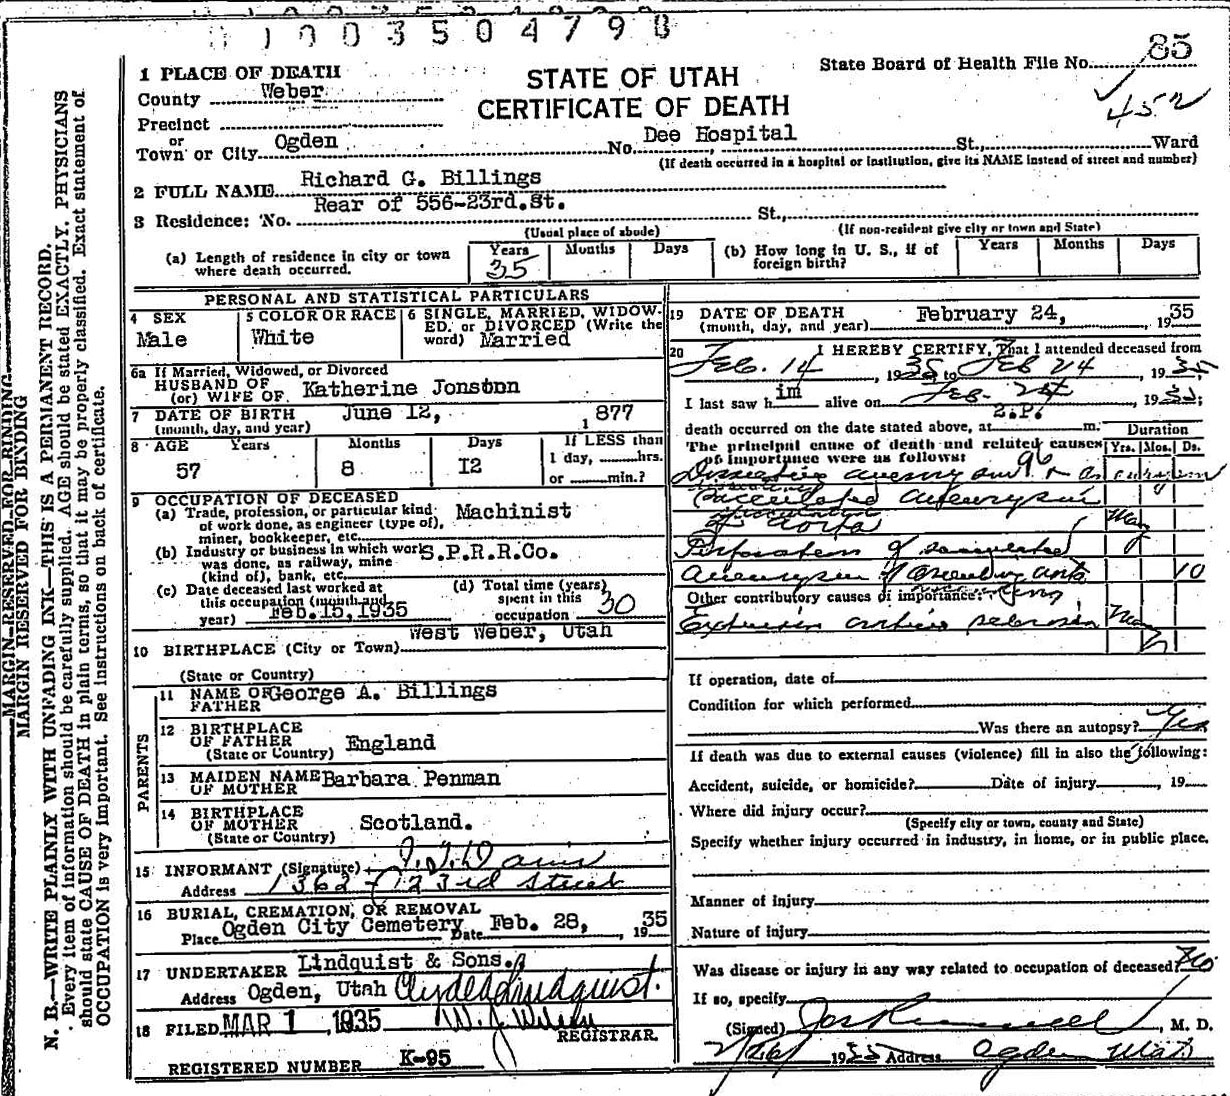 1003504798
State Board of Health File No. 85
452
STATE OF UTAH
CERTIFICATE OF DEATH
1 PLACE OF DEATH
County Weber
Precinct
or
Town or City Ogden No. Dee Hospital St., Ward
(If death occurred in a hospital or institution, give its NAME instead of street and number)
2 FULL NAME Richard G. Billings
3 Residence: No. Rear of 556-23rd.St. St.,
(Usual place of abode) (If non-resident give city or town and State)
(a) Length of residence in city or town where death occurred. Years 35 Months Days
(b) How long in U. S., if of foreign birth? Years Months Days
PERSONAL AND STATISTICAL PARTICULARS
4 SEX Male
5 COLOR OR RACE White
6 SINGLE, MARRIED, WIDOW-
ED, or DIVORCED (Write the
word) Married
6a If Married, Widowed, or Divorced
HUSBAND OF
(or) WIFE OF Katherine
7 DATE OF BIRTH June I2, 1877
(month, day, and year)
8 AGE Years 57 Months 8 Days I2
If LESS than
1 day, hrs.
or min.?
9 OCCUPATION OF DECEASED
(a) Trade, profession, or particular kind
of work done, as engineer (type of),
miner, bookkeeper, etc. Machinist
(b) Industry or business in which work
was done, as railway, mine
(kind of), bank, etc. S.P.R.R.Co.
(c) Date deceased last worked at
this occupation (month and
year) Feb.15,1935
(d) Total time (years)
spent in this
occupation 30
10 BIRTHPLACE (City or Town) West Weber, Utah
(State or Country)
PARENTS
11 NAME OF
FATHER George A. Billings
12 BIRTHPLACE
OF FATHER
(State or Country) England
13 MAIDEN NAME
OF MOTHER Barbara Penman
14 BIRTHPLACE
OF MOTHER
(State or Country) Scotland.
15 INFORMANT (Signature)
Address 1362 - 23rd Street
16 BURIAL, CREMATION, OR REMOVAL
Place Ogden City Cemetery Date Feb. 28, 1935
17 UNDERTAKER Lindquist & Sons.
Address Ogden, Utah Clyde Lindquist.
18 FILED MAR 1 1935
REGISTRAR.
REGISTERED NUMBER K-95
19 DATE OF DEATH
(month, day, and year) February 24, 1935
20 I HEREBY CERTIFY, That I attended deceased from
Feb. 14, 1935 to Feb 24 1935
I last saw him alive on Feb. 1935;
death occurred on the date stated above, at 2.P. m.
The principal cause of death and related causes
of importance were as follows:
Duration
Yrs. Mos. Ds.
96
Dissecting
Sacculated Aneurysm
of Aorta Many
Perforation of sacculated
aneurysm of Ascending Aorta 10
Other contributory causes of importance:
Extensive sclerosis Many
If operation, date of
Condition for which performed
Was there an autopsy? Yes
If death was due to external causes (violence) fill in also the following:
Accident, suicide, or homicide? Date of injury , 19
Where did injury occur?
(Specify city or town, county and State)
Specify whether injury occurred in industry, in home, or in public place.
Manner of injury
Nature of injury
Was disease or injury in any way related to occupation of deceased? No
If so, specify
(Signed) , M. D.
2/26/ 1935 Address Ogden Utah
MARGIN RESERVED FOR BINDING
MARGIN RESERVED FOR BINDING
N. B.—WRITE PLAINLY WITH UNFADING INK—THIS IS A PERMANENT RECORD.
Every item of information should be carefully supplied. AGE should be stated EXACTLY. PHYSICIANS
should state CAUSE OF DEATH in plain terms, so that it may be properly classified. Exact statement of
OCCUPATION is very important. See instructions on back of certificate.